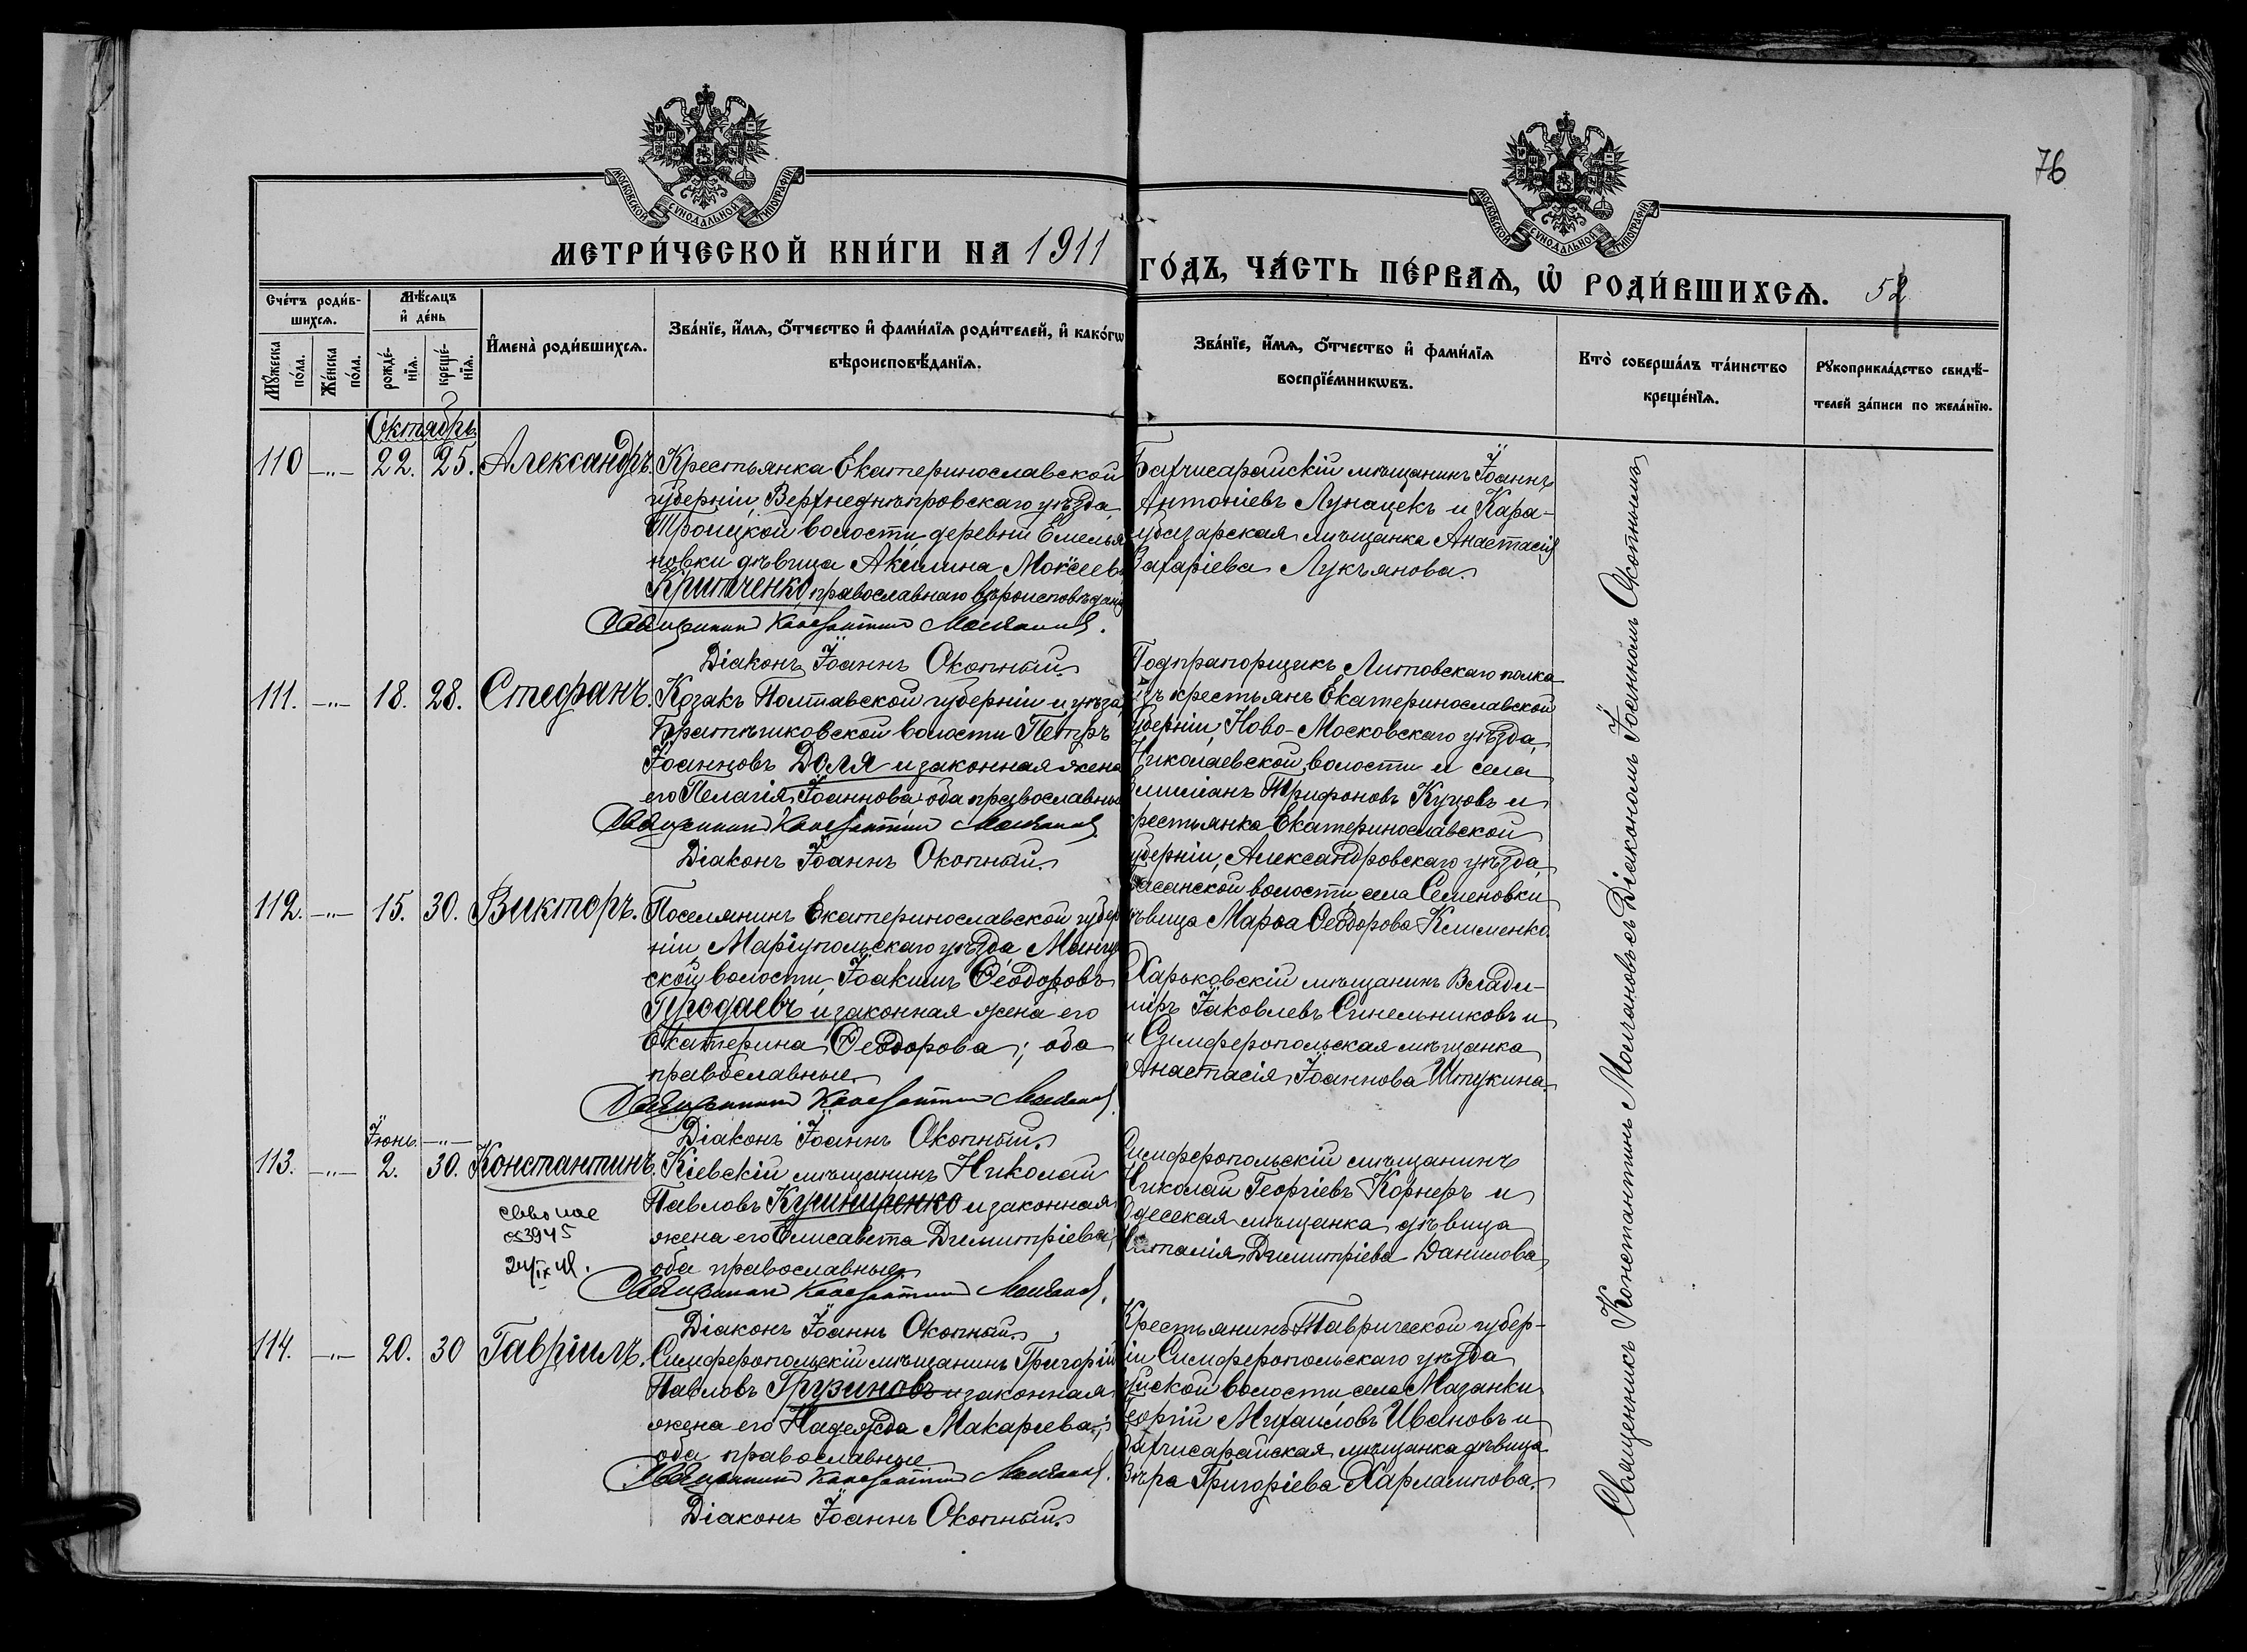 76
МОСКОВСКОЙ СѴНОДАЛЬНОЙ ТИПОГРАФІИ
МОСКОВСКОЙ СѴНОДАЛЬНОЙ ТИПОГРАФІИ
МЕТРИ́ЧЕСКОЙ КНИ́ГИ НА 1911
ГО́ДЪ, ЧА́СТЬ ПЕ́РВАѦ, Ѡ҆ РОДИ́ВШИХСѦ. 52
Сче́тъ роди́в-
шихсѧ.
Мꙋ́жеска
по́ла.
Же́нска
по́ла.
Мѣ́сѧцъ
и҆ де́нь
рожде́-
нїѧ.
креще́-
нїѧ.
И҆мена̀ роди́вшихсѧ.
Зва́нїе, и҆́мѧ, ѻ҆́тчество и҆ фами́лїѧ роди́телей, и҆ како́гѡ
вѣроисповѣ́данїѧ.
Зва́нїе, и҆́мѧ, ѻ҆́тчество и҆ фами́лїѧ
воспрїе́мникѡвъ.
Кто̀ соверша́лъ та́инство
креще́нїѧ.
Рꙋкоприкла́дство свидѣ́-
телей за́писи по жела́нїю.
Октябрь
110 —„— 22. 25. Александръ.
Крестьянка Екатеринославской
губерніи, Верхнеднѣпровскаго уѣзда
Троицкой волости деревни Емелья
новки дѣвица Акилина Моѵсеева
Критченко православнаго вѣроисповѣданія
Священникъ Константинъ Молчановъ.
Діаконъ Іоаннъ Окопный.
Бахчисарайскій мѣщанинъ Іоаннъ
Антоніевъ Лунацекъ и Кара-
субазарская мѣщанка Анастасія
Захаріева Лукьянова.
111. —„— 18. 28. Стефанъ.
Козакъ Полтавской губерніи и уѣзда,
Братешковской волости Петръ
Іоанновъ Доля и законная жена
его Пелагія Іоаннова; оба православные
Священникъ Константинъ Молчановъ
Діаконъ Іоаннъ Окопный.
Подпрапорщикъ Литовскаго полка
изъ крестьянъ Екатеринославской
губерніи, Ново-Московскаго уѣзда,
Николаевской волости и села
Трифоновъ Куцовъ и
крестьянка Екатеринославской
губерніи, Александровскаго уѣзда,
волости, села Семеновки
дѣвица Марѳа Ѳеодорова Клименко.
112. —„— 15. 30. Викторъ.
Поселянинъ Екатеринославской губер
ніи, Маріупольскаго уѣзда, Мангу
ской волости Іоакимъ Ѳеодоровъ
Пуродаевъ и законная жена его
Екатерина Ѳеодорова; оба
православные.
Священникъ Константинъ Молчановъ
Діаконъ Іоаннъ Окопный.
Харьковскій мѣщанинъ Влади-
міръ Іаковлевъ Синельниковъ и
и Симферопольская мѣщанка
Анастасія Іоаннова Штукина.
Іюнь. —„—
113. —„— 2. 30. Константинъ.
Кіевскій мѣщанинъ Николай
Павловъ Кушниренко и законная
жена его Елисавета Димитріева;
оба православные.
Священникъ Константинъ Молчановъ.
Діаконъ Іоаннъ Окопный.
24/IX 41.
Симферопольскій мѣщанинъ
Николай Георгіевъ Корнеръ и
Одесская мѣщанка дѣвица
Наталія Димитріева Данилова.
114. —„— 20. 30 Гавріилъ.
Симферопольскій мѣщанинъ Григорій
Павловъ Грузиновъ и законная
жена его Надежда Макаріева;
оба православные
Священникъ Константинъ Молчановъ.
Діаконъ Іоаннъ Окопный.
Крестьянинъ Таврической губер-
ніи Симферопольскаго уѣзда
Зуйской волости села Мазанки
Георгій Михаиловъ Ивановъ и
Бахчисарайская мѣщанка дѣвица
Вѣра Григоріева Харлампова.
Священникъ Константинъ Молчановъ съ Діакономъ Іоанномъ Окопнымъ